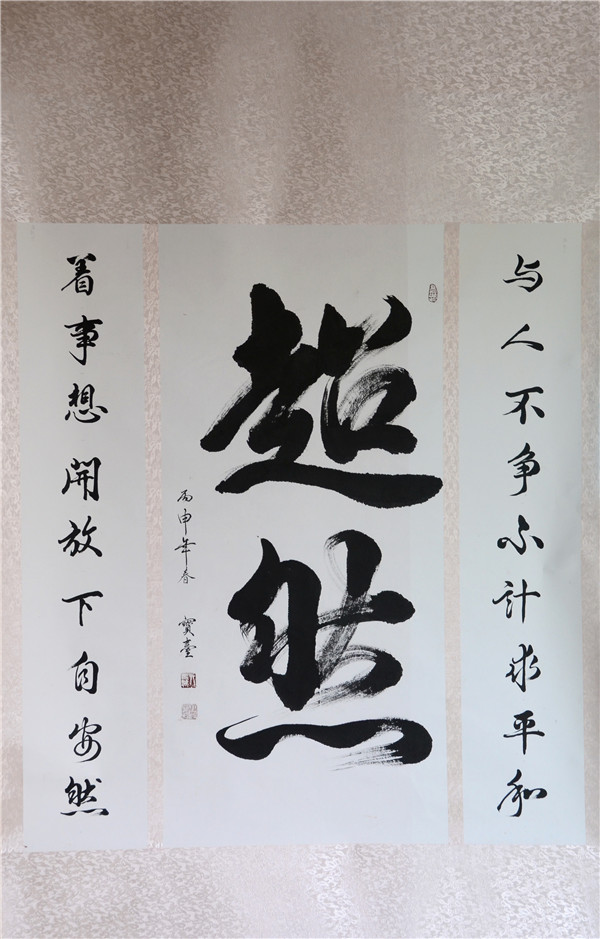 与人不争不计求平和
超然
丙申年春 寳臺
着事想開放下自安然